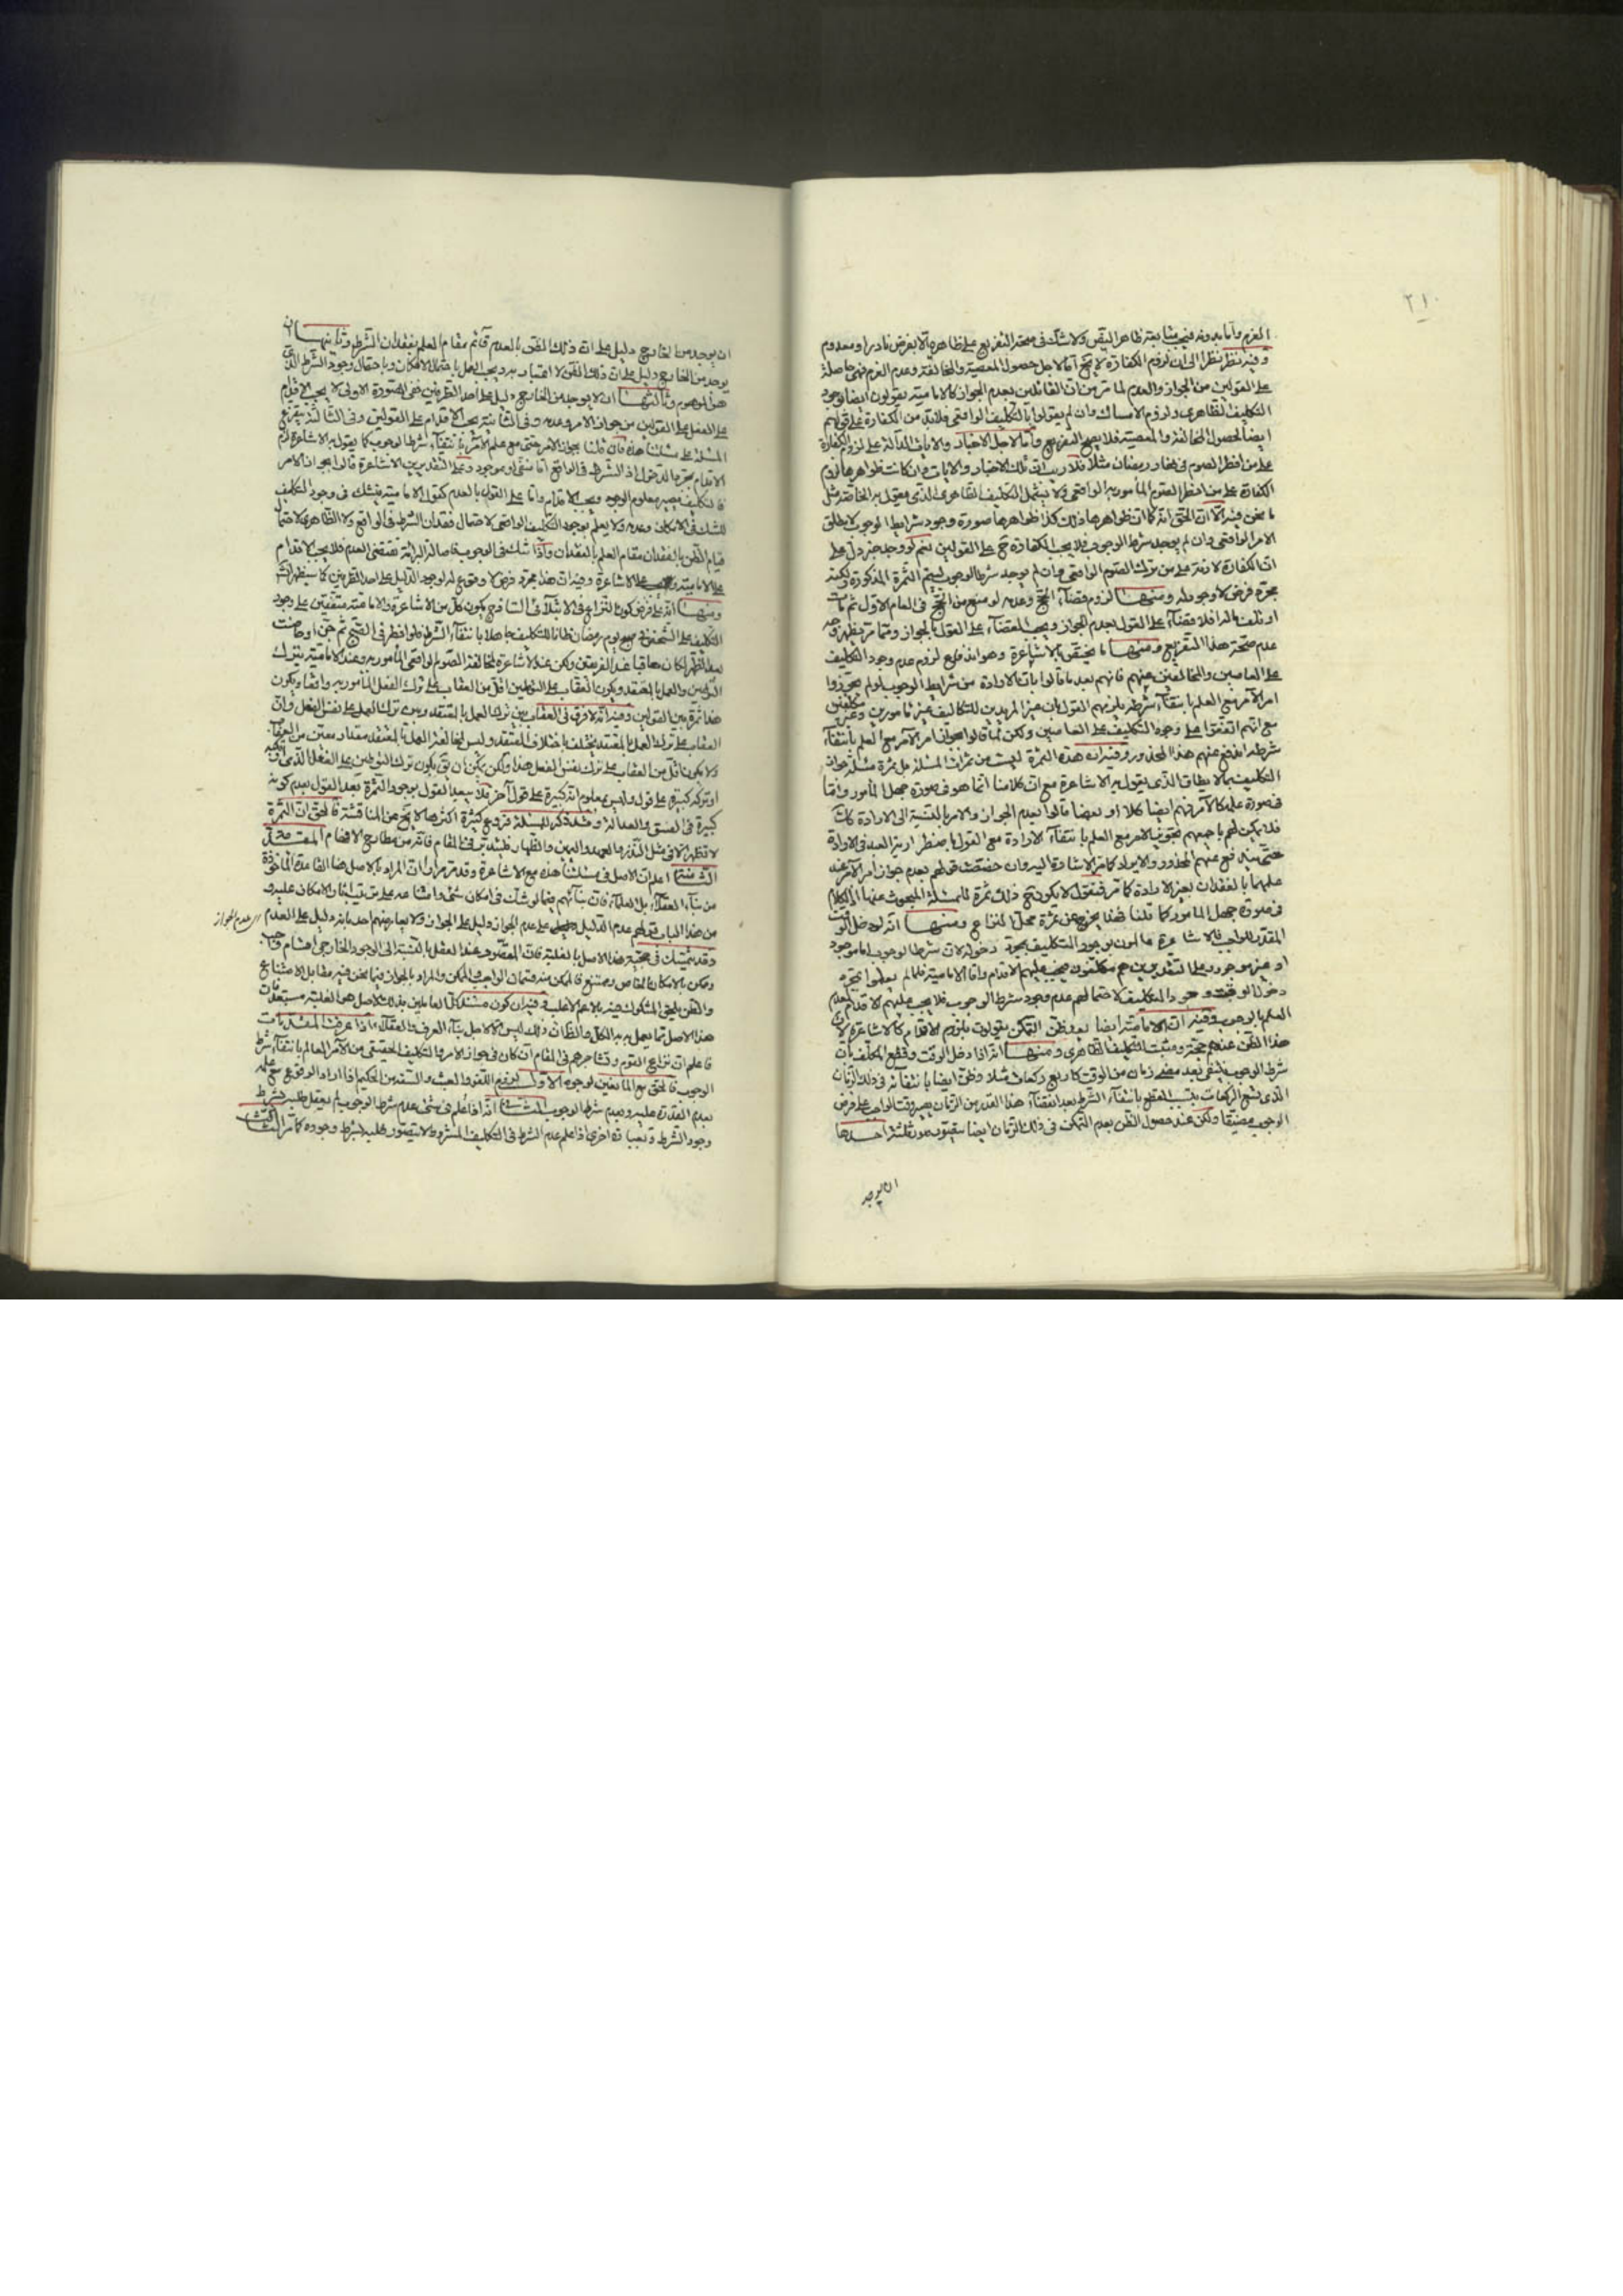 ٢١٠
العزم واما بدونه فيجب متابعة ظاهر اليقين ولا شك في صحة التفريع على ظاهره الا بفرض نادر او معدوم
وفيه نظر نظرا الى ان لزوم الكفارة لا يخ اما لاجل حصول المعصية والمخالفة وعدم العزم فهي حاصلة
على القولين من الجواز والعدم لما مر من ان القائلين بعدم الجواز كالامامية يقولون ايضا بوجود
التكليف الظاهري ولزوم الامساك وان لم يقولوا بالتكليف الواقعي فلا بد من الكفارة على قولهم
ايضا لحصول المخالفة والمعصية فلا يصح التفريع واما لاجل الاخبار والايات الدالة على لزوم الكفارة
على من افطر الصوم في نهار رمضان مثلا فلا ريب ان تلك الاخبار والايات وان كانت ظواهرها لزوم
الكفارة على من افطر الصوم المأمور به الواقعي ولا يشمل التكليف الظاهري الذي
ما نحن فيه الا ان الحق انه كما ان ظواهرها ذلك كذا ظواهرها صورة وجود شرايط الوجوب لا مطلق
الامر الواقعي وان لم يوجد شرط الوجوب فلا يجب الكفارة ح على القولين نعم لو وجد خبر دل على
ان الكفارة لازمة على من ترك الصوم الواقعي وان لم يوجد شرط الوجوب ليتم الثمرة المذكورة ولكنه
مجرد فرض لا وجود له ومنها لزوم قضاء الحج وعدمه لو منع من الحج في العام الاول ثم مات
او تلف ماله فلا قضاء على القول بعدم الجواز ويجب القضاء على القول بالجواز ومما مر يظهر وجه
عدم صحة هذا التفريع ومنها ما يختص بالاشاعرة وهو اندفاع لزوم عدم وجود التكليف
على العاصين والمخالفين عنهم فانهم بعد ما قالوا بان الارادة من شرايط الوجوب لو لم يجوزوا
امر الآمر مع العلم بانتفاء شرطه يلزمهم القول بان غير المريدين للتكاليف غير مأمورين وغير مكلفين
مع انهم اتفقوا على وجود التكليف على العاصين ولكن لما قالوا بجواز امر الآمر مع العلم بانتفاء
شرطه اندفع عنهم هذا المحذور وفيه ان هذه الثمرة ليست من ثمرات المسئلة بل ثمرة مسئلة جواز
التكليف بما لا يطاق الذي يقول به الاشاعرة مع ان كلامنا انما هو في صورة جهل المأمور واما
في صورة علمه كالآمر فهم ايضا كلا او بعضا قالوا بعدم الجواز والامر بالنسبة الى الارادة كك
فلا يمكن لهم باجمعهم تجويز الامر مع العلم بانتفاء الارادة مع القول باضطرارية العبد في الارادة
حتى يندفع عنهم المحذور والايراد كما مر الاشارة اليه وان خصصت قولهم بعدم جواز امر الآمر عند
علمهما بالفقدان بغير الارادة كما مر فنقول لا يكون ح ذلك ثمرة للمسئلة المبحوث عنها اذ الكلام
في صورة جهل المأمور كما قلنا فهذا يخرج عن ثمرة محل النزاع ومنها انه لو دخل الوقت
المقدر للواجب فالاشاعرة عالمون بوجود التكليف بمجرد دخوله لان شرط الوجوب اما موجود
او غير موجود وعلى التقديرين هم مكلفون فيجب عليهم الاقدام واما الامامية فلما لم يعلموا بمجرد
دخول الوقت وجود التكليف لاحتمالهم عدم وجود شرط الوجوب فلا يجب عليهم الاقدام لعدم
العلم بالوجوب وفيه ان الامامية ايضا بعد ظن التمكن يقولون بلزوم الاقدام كالاشاعرة لان
هذا الظن عندهم حجة ومثبت للتكليف الظاهري ومنها انه اذا دخل الوقت وقطع المكلف بان
شرط الوجوب ينتفي بعد مضي زمان من الوقت كاربع ركعات مثلا وظن ايضا بانتفائه في ذلك الزمان
الذي يسع الركعات فبسبب القطع بانتفاء الشرط بعد انقضاء هذا القدر من الزمان يصير وقت الواجب على فرض
الوجوب مضيقا ولكن عند حصول الظن بعدم التمكن في ذلك الزمان ايضا يتصور صور ثلثة احدها
ان يوجد
ان يوجد من الخارج دليل على ان ذلك الظن بالعدم قائم مقام العلم بفقدان الشرط وثانيها ان
يوجد من الخارج دليل على ان ذلك الظن لا اعتبار به ويجب العمل باحتمال الامكان وباحتمال وجود الشرط الذي
هو الموهوم وثالثها ان لا يوجد من الخارج دليل على احد الطرفين ففي الصورة الاولى لا يجب الاقدام
على الفعل على القولين من جواز الامر وعدمه وفي الثانية يجب الاقدام على القولين وفي الثالثة يتفرع
المسئلة على مسئلتنا هذه فان قلنا بجواز الامر حتى مع علم الآمر بانتفاء شرط الوجوب كما يقول به الاشاعرة لزم
الاقدام بمجرد الدخول اذ الشرط في الواقع اما منتفى او موجود وعلى التقديرين الاشاعرة قالوا بجواز الامر
فالتكليف يصير معلوم الوجود ويجب الاقدام واما على القول بالعدم كقول الامامية فيشك في وجود التكليف
للشك في الامكان وعدمه ولا يعلم بوجود التكليف الواقعي لاحتمال فقدان الشرط في الواقع ولا الظاهري لاحتمال
قيام الظن بالفقدان مقام العلم بالفقدان واذا شك في الوجوب فاصالة البرائة تقتضي العدم فلا يجب الاقدام
على الامامية ويجب على الاشاعرة وفيه ان هذا مجرد فرض لا وقوع له لوجود الدليل على احد الطرفين كما سيظهر
ومنها انه على فرض كون النزاع في الابتلائي الساذج يكون كل من الاشاعرة والامامية متفقين على وجود
التكليف على الشخص في صبح يوم رمضان ظانا للتكليف جاهلا بانتفاء الشرط فلو افطر في الصبح ثم جن او حاضت
بعد الظهر لكان معاقبا عند الفريقين ولكن عند الاشاعرة لمخالفة الصوم الواقعي المأمور به وعند الامامية بترك
التوطين والعمل بالمعتقد ويكون العقاب على التوطين اقل من العقاب على ترك الفعل المأمور به واقعا ويكون
هذا ثمرة بين القولين وفيه انه لا فرق في العقاب بين ترك العمل بالمعتقد وبين ترك العمل على نفس الفعل وان
العقاب على ترك العمل بالمعتقد يختلف باختلاف المعتقد وليس لمخالفة العمل بالمعتقد مقدار معين من العقاب
ولا يكون اقل من العقاب على ترك نفس الفعل هذا ولكن يمكن ان يق يكون ترك التوطين على الفعل الذي
او تركه كبيرة على قول وليس بمعلوم انه كبيرة على قول آخر فلا يبعد القول بوجود الثمرة بعد القول بعدم كونه
كبيرة في الفسق والعدالة وقد ذكر للمسئلة فروع كثيرة اكثرها لا يخ عن المناقشة فالحق ان الثمرة
لا تظهر الا في مثل النذر والعهد واليمين والظهار فليتدبر في المقام فانه من مطارح الافهام المقدمة
الثامنة اعلم ان الاصل في مسئلتنا هذه مع الاشاعرة وقد مر مرارا ان المراد بالاصل هنا القاعدة المأخوذة
من بناء العقلاء بل العلماء فان بنائهم فيما لو شك في امكان شيء وامتناعه على ترتيب اثار الامكان عليه
من هذا الباب قولهم عدم الدليل على عدم الجواز دليل على الجواز ولا يعارضهم احد بانه دليل على العدم
على عدم الجواز
وقد يتمسك في حجية هذا الاصل بالغلبة فان المتصور عند العقل بالنسبة الى الوجود الخارجي اقسام واجب
وممكن بالامكان الخاص وممتنع فالممكن منه قسمان الواجب والممكن والمراد بالجواز فيما نحن فيه مقابل الامتناع
والظن يلحق المشكوك فيه بالاعم الاغلب وفيه ان كون مستند كل العاملين بذلك الاصل هو الغلبة مستبعد فان
هذا الاصل مما يعمل به الكل والظان وذلك ليس الا لاجل بناء العرف والعقلاء اذا عرفت المقدمات
فاعلم ان نزاع القوم وتشاجرهم في المقام ان كان في جواز الامر والتكليف الحقيقي من الآمر العالم بانتفاء شرط
الوجوب فالحق مع المانعين لوجوه الاول لزوم اللغو والعبث والسفه من الحكيم اذا اراد الوقوع مع علمه
بعدم القدرة عليه وبعدم شرط الوجوب الثاني انه اذا علم في شيء عدم شرط الوجوب لم يعقل طلبه بشرط
وجود الشرط وبعبارة اخرى اذا علم عدم الشرط في التكليف المشروط لا يتصور طلبه بشرط وجوده كما مر الثالث